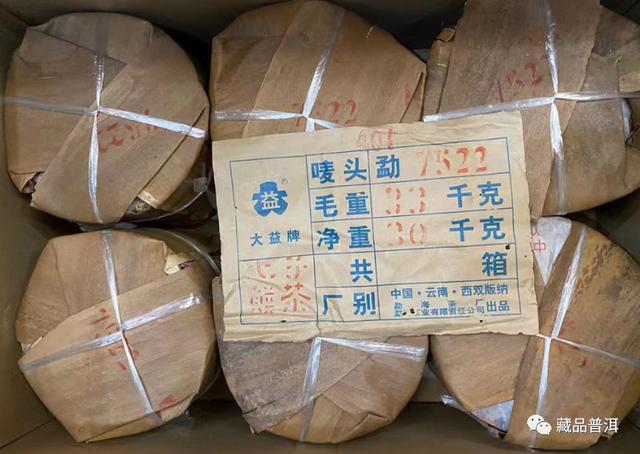 7522
7522
401
唛头 勐 7522
益
毛重 33 千克
大益牌
净重 30 千克
共 箱
煎茶
厂别
中国·云南·西双版纳
勐海茶厂
业有限责任公司 出品
中
藏品普洱